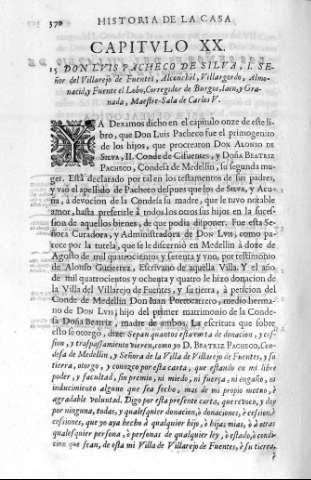 570
HISTORIA DE LA CASA
CAPITVLO XX.
15 DON LVIS PACHECO DE SILVA, I. Se-
ñor del Villarejo de Fuentes, Alconchel, Villargordo, Almo-
nacid, y Fuente el Lobo, Corregidor de Burgos, Iaen, y Gra-
nada, Maestre-Sala de Carlos V.
YA Deximos dicho en el capitulo onze de este li-
bro, que Don Luis Pacheco fue el primogenito
de los hijos, que procrearon DON ALONSO DE
SILVA, II. Conde de Cifuentes, y DOÑA BEATRIZ
PACHECO, Condesa de Medellin, su segunda mu-
ger. Està declarado por tal en los testamentos de sus padres,
y vsò el apellido de Pacheco despues que los de Silva, y Acu-
ña, à devocion de la Condesa su madre, que le tuvo notable
amor, hasta preferirle à todos los otros sus hijos en la suces-
sion de aquellos bienes, de que podia disponer. Fue esta Se-
ñora Curadora, y Administradora de DON LVIS, como pa-
rece por la tutela, que se le discerniò en Medellin à doze de
Agosto de mil quatrocientos y setenta y vno, por testimonio
de Alonso Gutierrez, Escrivano de aquella Villa. Y el año
de mil quatrocientos y ochenta y quatro le hizo donacion de
la Villa del Villarejo de Fuentes, y su tierra, à peticion del
Conde de Medellin DON Iuan PORTOCARRERO, medio herma-
no de DON LVIS, hijo del primer matrimonio de la Conde-
sa DOÑA Beatriz, madre de ambos. La escritura que sobre
esto se otorgò, dize: Sepan quantos esta carta de donacion, y ces-
sion, y traspassamiento vieren, como yo D. BEATRIZ PACHECO, Con-
desa de Medellin, y Señora de la Villa de Villarejo de Fuentes, y su
tierra, otorgo, y conozco por esta carta, que estando en mi libre
poder, y facultad, sin premio, ni miedo, ni fuerza, ni engaño, ni
inducimiento alguno que sea fecho, mas de mi propio motuo, è
agradable voluntad. Digo por esta presente carta, que revoco, y doy
por ninguna, todas, y qualesquier donacion, ò donaciones, ò cession, ò
cessiones, que yo aya hecho à qualquier hijo, ò hijas mias, ò à otras
qualesquier persona, ò personas de qualquier ley, ò estado, ò condi-
cion que sean, de esta mi Villa de Villarejo de Fuentes, ò su tierra,